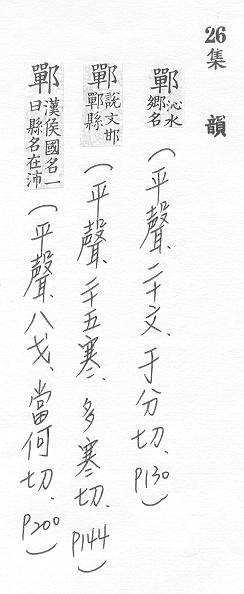 26集 韻
鄲 沁水鄉名（平聲、二十文、于分切、P130）
鄲 說文邯鄲縣（平聲、二十五寒、多寒切、P144）
鄲 漢侯國名一曰縣名在沛（平聲、八戈、當何切、P200）